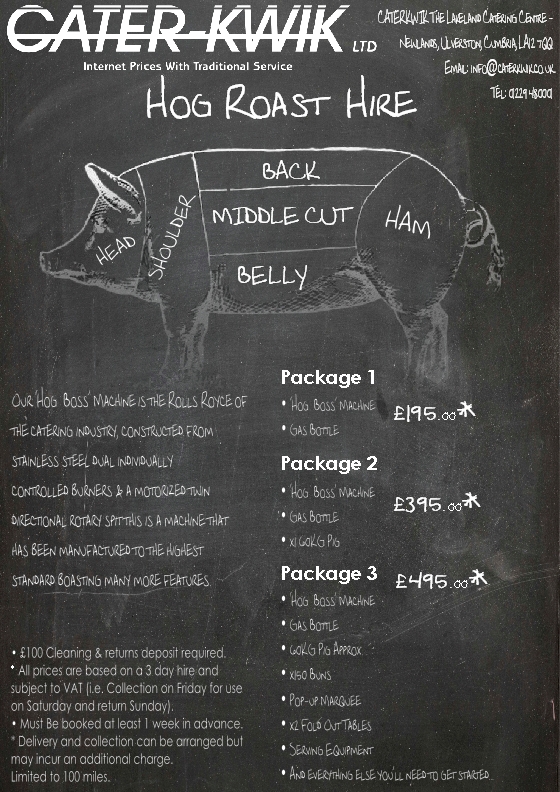 CATER-KWIK LTD
Internet Prices With Traditional Service
CATERKWIK THE LAKELAND CATERING CENTRE -
NEWLANDS, ULVERSTON, CUMBRIA, LA12 7QQ
EMAIL: INFO@CATERKWIK.CO.UK
TEL: 01229 480001
HOG ROAST HIRE
HEAD
SHOULDER
BACK
MIDDLE CUT
BELLY
HAM
OUR 'HOG BOSS' MACHINE IS THE ROLLS ROYCE OF
THE CATERING INDUSTRY, CONSTRUCTED FROM
STAINLESS STEEL, DUAL INDIVIDUALLY
CONTROLLED BURNERS & A MOTORIZED TWIN
DIRECTIONAL ROTARY SPIT THIS IS A MACHINE THAT
HAS BEEN MANUFACTURED TO THE HIGHEST
STANDARD BOASTING MANY MORE FEATURES.
• £100 Cleaning & returns deposit required.
* All prices are based on a 3 day hire and
subject to VAT (i.e. Collection on Friday for use
on Saturday and return Sunday).
• Must Be booked at least 1 week in advance.
* Delivery and collection can be arranged but
may incur an additional charge.
Limited to 100 miles.
Package 1
• 'HOG BOSS' MACHINE
• GAS BOTTLE
£195.00*
Package 2
• 'HOG BOSS' MACHINE
• GAS BOTTLE
• X1 60KG PIG
£395.00*
Package 3
£495.00*
• 'HOG BOSS' MACHINE
• GAS BOTTLE
• 60KG PIG APPROX
• X150 BUNS
• POP-UP MARQUEE
• X2 FOLD OUT TABLES
• SERVING EQUIPMENT
• AND EVERYTHING ELSE YOU'LL NEED TO GET STARTED...